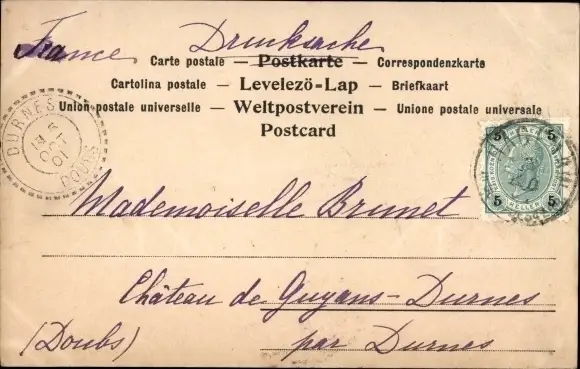 France Drucksache
Carte postale — Postkarte — Correspondenzkarte
Cartolina postale — Levelezö-Lap — Briefkaart
Union postale universelle — Weltpostverein — Unione postale universale
Postcard
DURNES
OCT
01
DOUBS
5 5
5 HELLER 5
Mademoiselle Brunet
Château de Guyans-Durnes
(Doubs) par Durnes